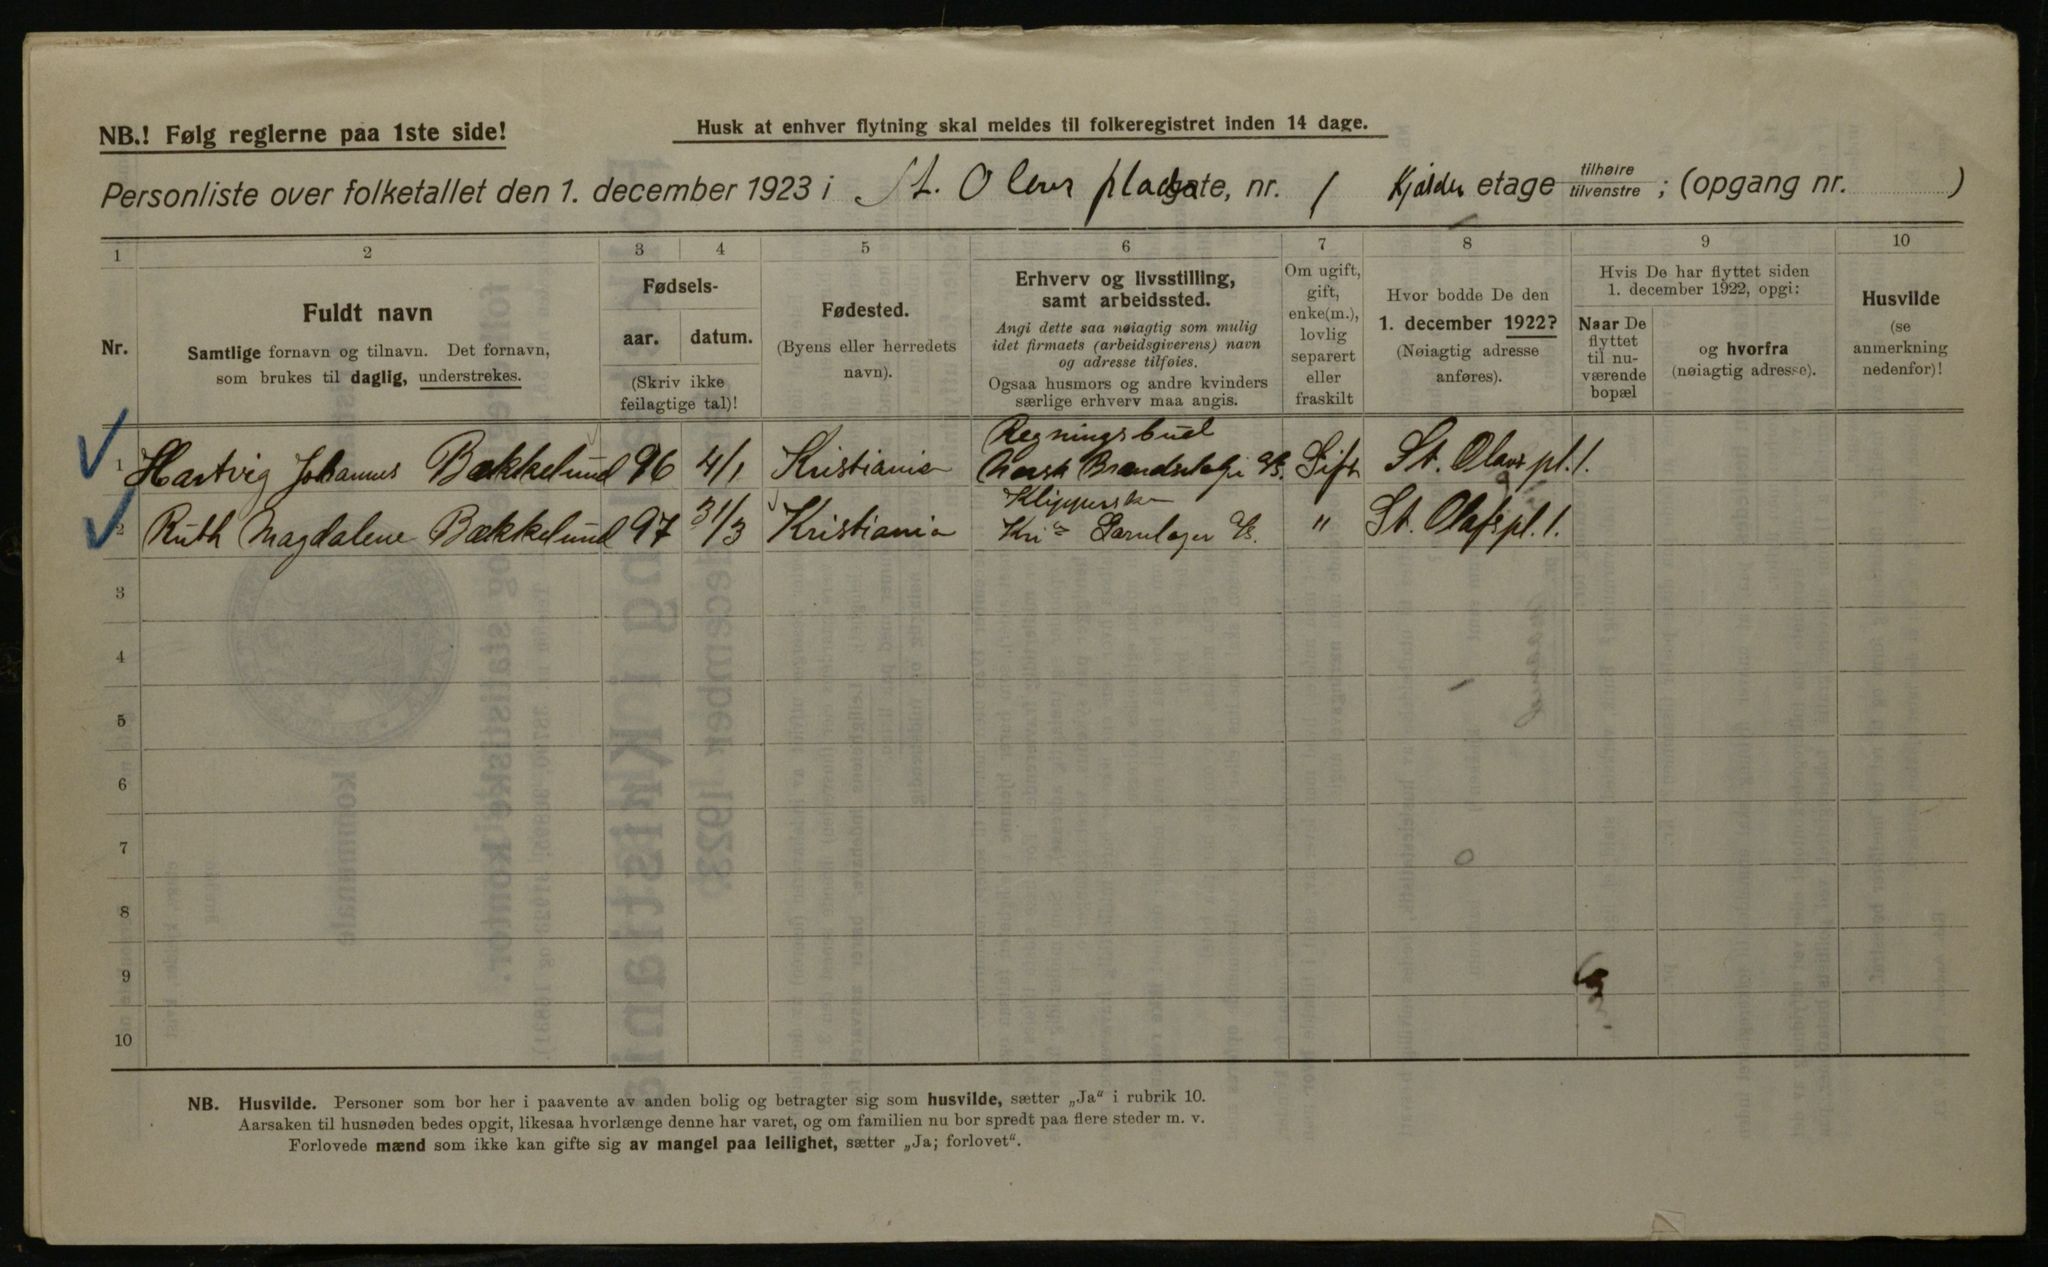 NB.! Følg reglerne paa 1ste side!
Husk at enhver flytning skal meldes til folkeregistret inden 14 dage.
Personliste over folketallet den 1. december 1923 i St. Olavs plads gate, nr. 1 Kjælder etage tilhøire / tilvenstre ; (opgang nr. )
1 2 3 4 5 6 7 8 9 10
Nr.
Fuldt navn
Samtlige fornavn og tilnavn. Det fornavn,
som brukes til daglig, understrekes.
Fødsels-
aar. datum.
(Skriv ikke
feilagtige tal)!
Fødested.
(Byens eller herredets
navn).
Erhverv og livsstilling,
samt arbeidssted.
Angi dette saa nøiagtig som mulig
idet firmaets (arbeidsgiverens) navn
og adresse tilføies.
Ogsaa husmors og andre kvinders
særlige erhverv maa angis.
Om ugift,
gift,
enke(m.),
lovlig
separert
eller
fraskilt
Hvor bodde De den
1. december 1922?
(Nøiagtig adresse
anføres).
Hvis De har flyttet siden
1. december 1922, opgi:
Naar De
flyttet
til nu-
værende
bopæl
og hvorfra
(nøiagtig adresse).
Husvilde
(se
anmerkning
nedenfor)!
Regningsbud
1 Hartvig Johannes Bækkelund 96 4/1 Kristiania Norsk A/S. Gift St. Olavs pl. 1.
Klipperske
2 Ruth Magdalene Bækkelund 97 31/3 Kristiania Kra Garnlager A/S. " St. Olafs pl. 1.
3
4
5
6
7
8
9
10
NB. Husvilde. Personer som bor her i paavente av anden bolig og betragter sig som husvilde, sætter „Ja“ i rubrik 10.
Aarsaken til husnøden bedes opgit, likesaa hvorlænge denne har varet, og om familien nu bor spredt paa flere steder m. v.
Forlovede mænd som ikke kan gifte sig av mangel paa leilighet, sætter „Ja; forlovet“.